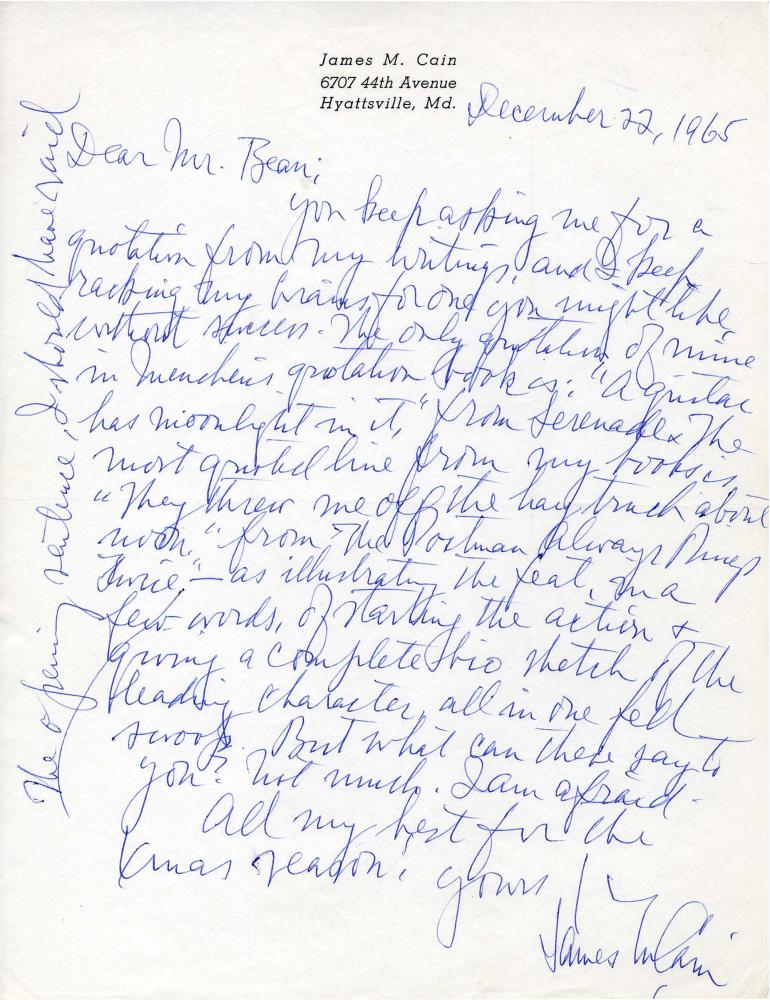 James M. Cain
6707 44th Avenue
Hyattsville, Md.
December 22, 1965
Dear Mr. Bean;
you keep asking me for a
quotation from my writings, and I keep
racking my brains for one you might like,
without success. The only quotation of mine
in Mencken's quotation book is: "A guitar
has moonlight in it," from Serenade. The
most quoted line from my books is,
"They threw me off the hay truck about
noon," from The Postman Always Rings
Twice — as illustrating the feat, in a
few words, of starting the action &
giving a complete bio sketch of the
leading character, all in one fell
swoop. But what can these say to
you? Not much. I am afraid.
All my best for the
Xmas season,
yours
James M Cain
The opening sentence, I should have said